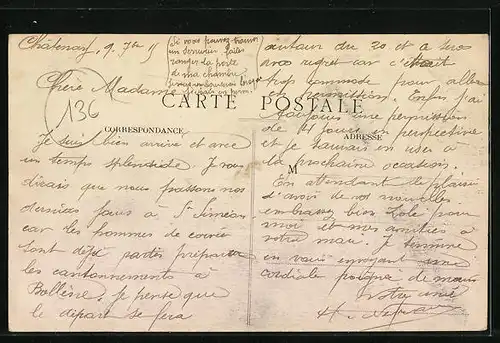 Châtenay, 9. 7bre 15
(Si vous pouvez trouver
un serrurier faites
ranger la porte
de ma chambre
Chère Madame
136
CARTE POSTALE
CORRESPONDANCE
ADRESSE
M
Je suis bien arrivé et avec
un temps splendide Je vous
disais que nous passons nos
derniers jours à St Siméon
car les hommes de corvée
sont déjà partis préparer
les cantonnements à
Bollène. je pense que
le départ se fera
autour du 20 et à
regret car c'était
trop commode pour aller
en permission. Enfin j'ai
toujours une permission
de 4 jours en perspective
et je saurai en user à
la prochaine occasion.
En attendant le plaisir
d'avoir de vos nouvelles
embrassez bien pour
moi et mes amitiés à
votre mari. Je termine
en vous envoyant une
cordiale poignée de main
Votre ami
H.